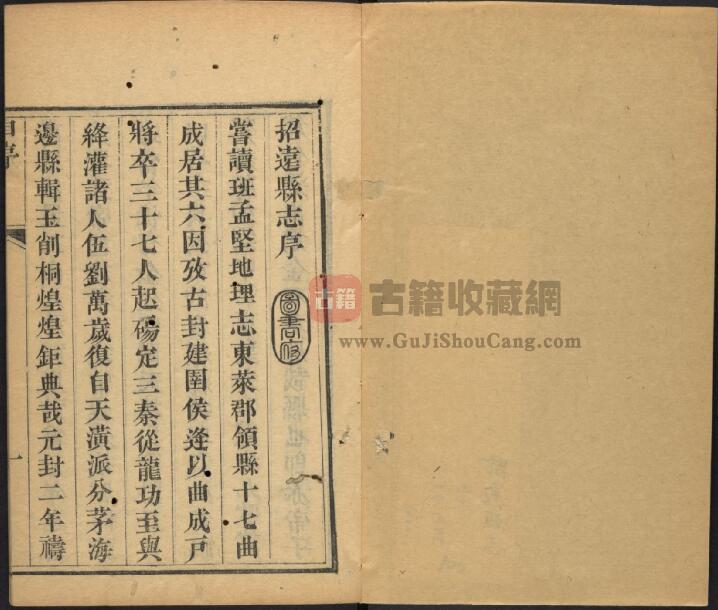 招遠縣志序
嘗讀班孟堅地理志東萊郡領縣十七曲
成居其六因攷古封建圉侯逄以曲成戸
將卒三十七人起碭定三秦從龍功至與
絳灌諸人伍劉萬歲復自天潢派分茅海
邊縣輯玉削桐煌煌鉅典哉元封二年禱
序
一
古籍
古籍收藏網
www.GuJiShouCang.com